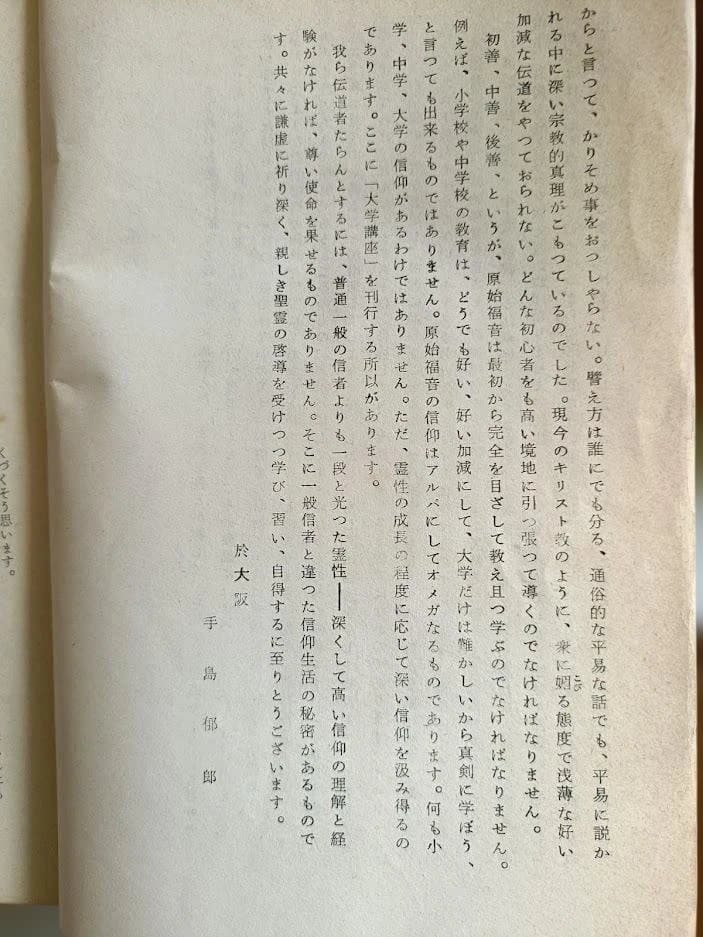 からと言つて、かりそめ事をおつしやらない。譬え方は誰にでも分る、通俗的な平易な話でも、平易に説か
れる中に深い宗教的真理がこもつているのでした。現今のキリスト教のように、衆に媚る態度で浅薄な好い
加減な伝道をやつておられない。どんな初心者をも高い境地に引つ張つて導くのでなければなりません。
初善、中善、後善、というが、原始福音は最初から完全を目ざして教え且つ学ぶのでなければなりません。
例えば、小学校や中学校の教育は、どうでも好い、好い加減にして、大学だけは難かしいから真剣に学ぼう、
と言つても出来るものではありません。原始福音の信仰はアルパにしてオメガなるものであります。何も小
学、中学、大学の信仰があるわけではありません。ただ、霊性の成長の程度に応じて深い信仰を汲み得るの
であります。ここに「大学講座」を刊行する所以があります。
我ら伝道者たらんとするには、普通一般の信者よりも一段と光つた霊性――深くして高い信仰の理解と経
験がなければ、尊い使命を果せるものでありません。そこに一般信者と違つた信仰生活の秘密があるもので
す。共々に謙虚に祈り深く、親しき聖霊の啓導を受けつつ学び、習い、自得するに至りとうございます。
於大阪
手島郁郎
くづくそう思います。